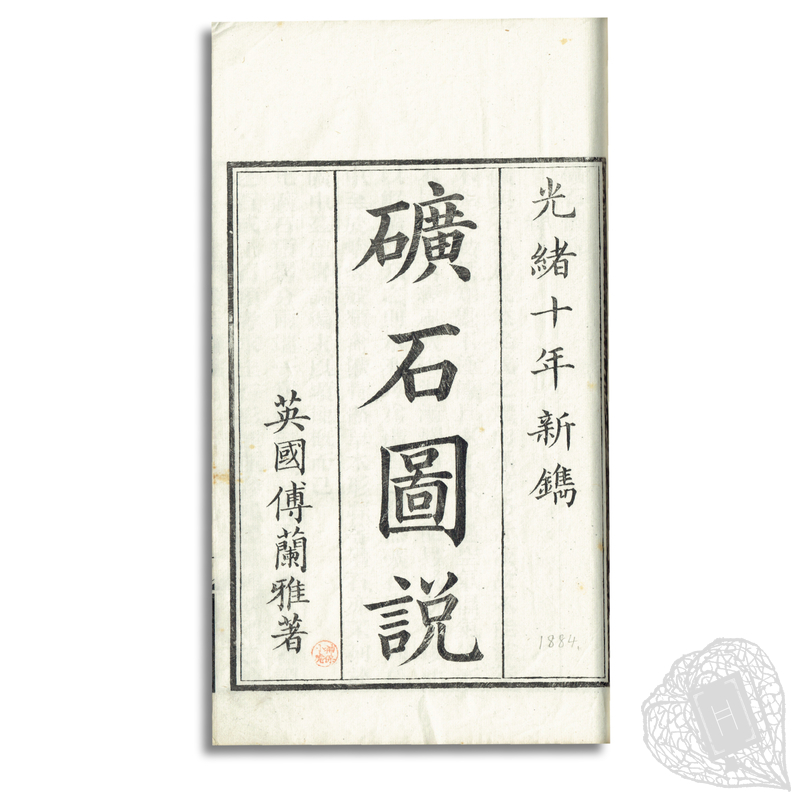 光緒十年新鐫
礦石圖説
英國傅蘭雅著
1884.
H